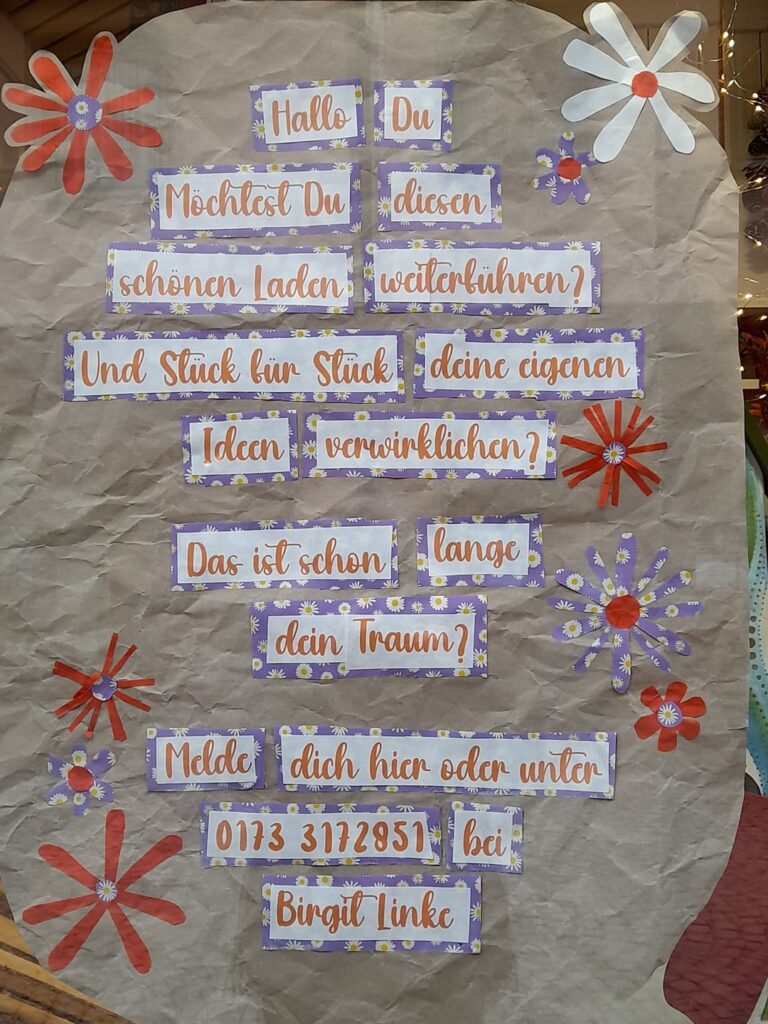 Hallo Du
Möchtest Du diesen
schönen Laden weiterführen?
Und Stück für Stück deine eigenen
Ideen verwirklichen?
Das ist schon lange
dein Traum?
Melde dich hier oder unter
0173 3172851 bei
Birgit Linke